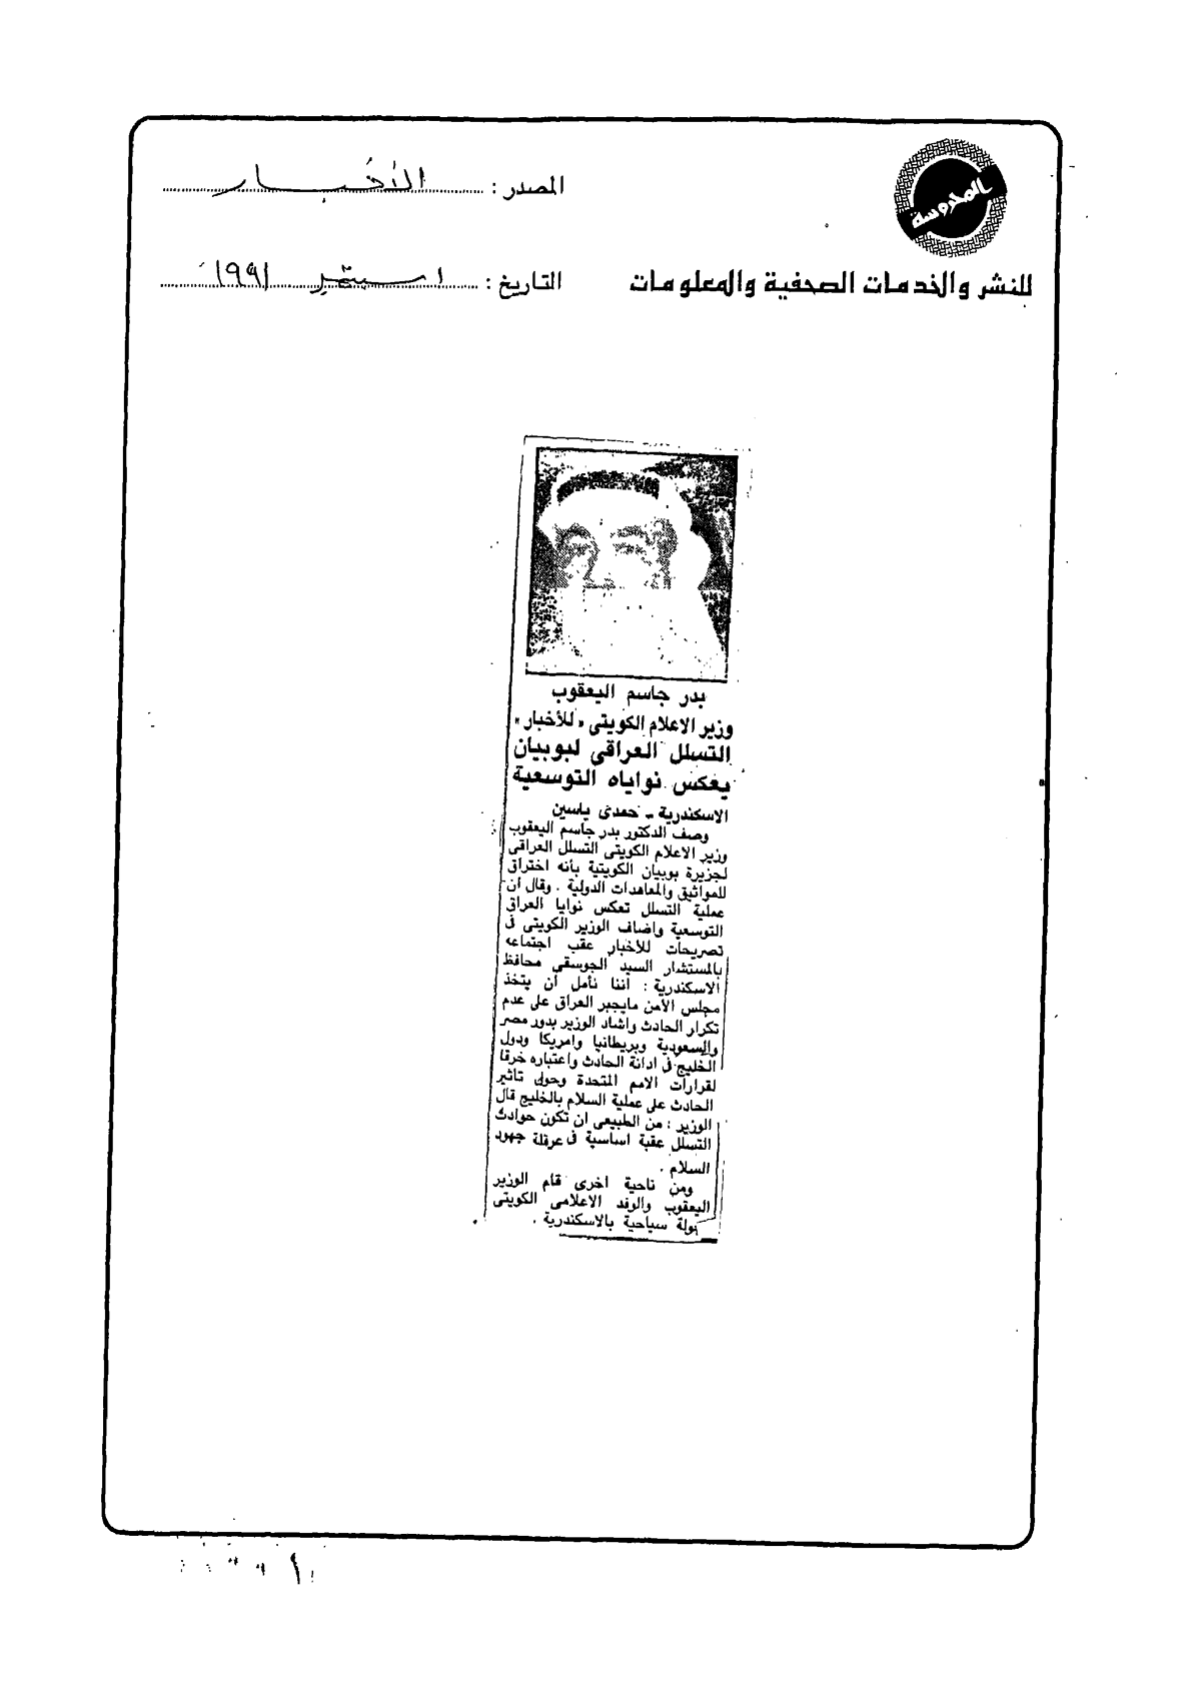 المحروسة
للنشر والخدمات الصحفية والمعلومات
المصدر : الأخبار
التاريخ : ١ سبتمبر ١٩٩١
بدر جاسم اليعقوب
وزير الاعلام الكويتى «للأخبار»
التسلل العراقى لبوبيان
يعكس نواياه التوسعية
الاسكندرية - حمدى ياسين
وصف الدكتور بدر جاسم اليعقوب
وزير الاعلام الكويتى التسلل العراقى
لجزيرة بوبيان الكويتية بأنه اختراق
للمواثيق والمعاهدات الدولية . وقال أن
عملية التسلل تعكس نوايا العراق
التوسعية واضاف الوزير الكويتى فى
تصريحات للأخبار عقب اجتماعه
بالمستشار السيد الجوسقى محافظ
الاسكندرية : أننا نأمل أن يتخذ
مجلس الأمن مايجبر العراق على عدم
تكرار الحادث واشاد الوزير بدور مصر
والسعودية وبريطانيا وامريكا ودول
الخليج فى ادانة الحادث واعتباره خرقا
لقرارات الامم المتحدة وحول تاثير
الحادث على عملية السلام بالخليج قال
الوزير : من الطبيعى ان تكون حوادث
التسلل عقبة اساسية فى عرقلة جهود
السلام .
ومن ناحية اخرى قام الوزير
اليعقوب والوفد الاعلامى الكويتى
بجولة سياحية بالاسكندرية .